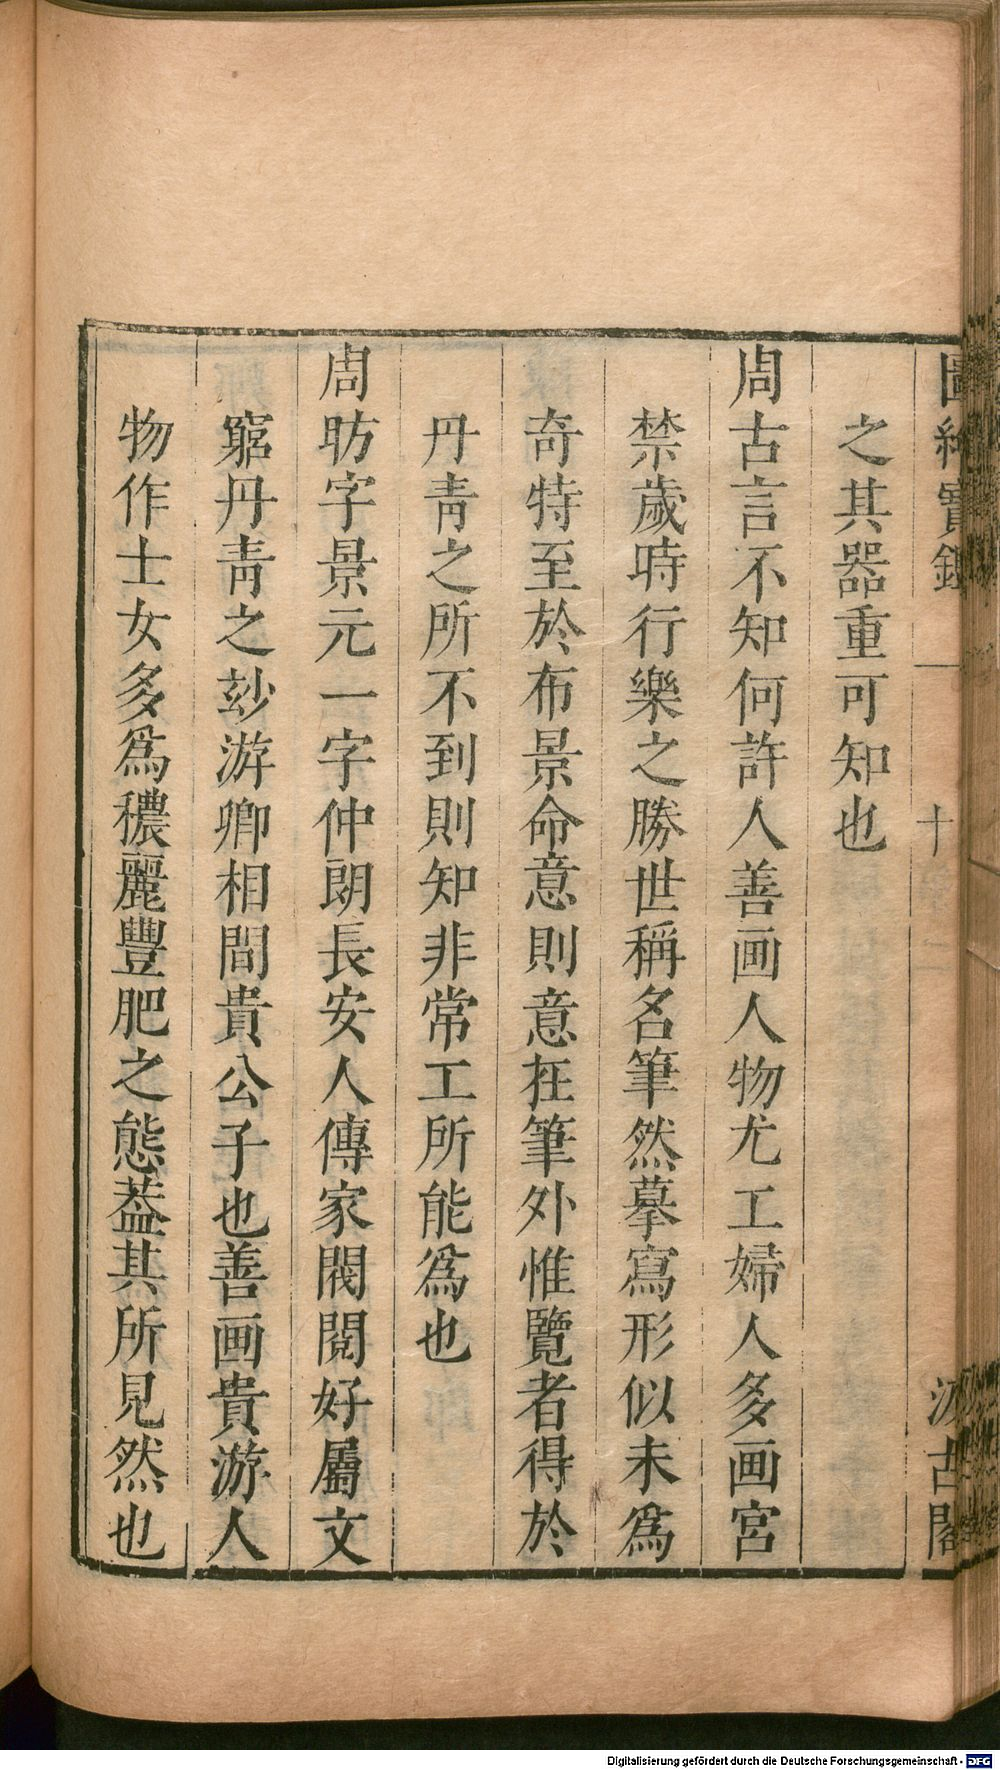 圖繪寶鑑
十
汲古閣
之其器重可知也
周古言不知何許人善画人物尤工婦人多画宮
禁歲時行樂之勝世稱名筆然摹寫形似未爲
奇特至於布景命意則意在筆外惟覽者得於
丹青之所不到則知非常工所能爲也
周昉字景元一字仲朗長安人傳家閥閱好屬文
窮丹青之玅游卿相間貴公子也善画貴游人
物作士女多爲穠麗豐肥之態葢其所見然也
Digitalisierung gefördert durch die Deutsche Forschungsgemeinschaft - DFG